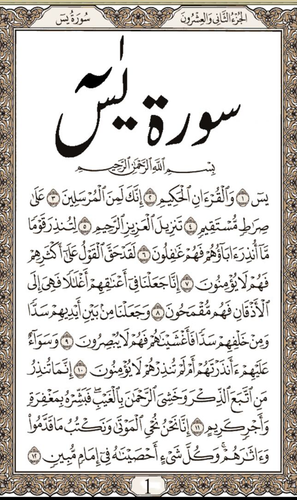 سُورَةُ يسٓ الجُزْءُ الثَّانِي وَالعِشْرُونَ
سورة يٰسٓ
بِسْمِ اللَّهِ الرَّحْمَٰنِ الرَّحِيمِ
يسٓ ١ وَالْقُرْءَانِ الْحَكِيمِ ٢ إِنَّكَ لَمِنَ الْمُرْسَلِينَ ٣ عَلَىٰ
صِرَاطٍ مُّسْتَقِيمٍ ٤ تَنزِيلَ الْعَزِيزِ الرَّحِيمِ ٥ لِتُنذِرَ قَوْمًا
مَّا أُنذِرَ ءَابَاؤُهُمْ فَهُمْ غَٰفِلُونَ ٦ لَقَدْ حَقَّ الْقَوْلُ عَلَىٰ أَكْثَرِهِمْ
فَهُمْ لَا يُؤْمِنُونَ ٧ إِنَّا جَعَلْنَا فِي أَعْنَٰقِهِمْ أَغْلَٰلًا فَهِيَ إِلَى
الْأَذْقَانِ فَهُم مُّقْمَحُونَ ٨ وَجَعَلْنَا مِن بَيْنِ أَيْدِيهِمْ سَدًّا
وَمِنْ خَلْفِهِمْ سَدًّا فَأَغْشَيْنَٰهُمْ فَهُمْ لَا يُبْصِرُونَ ٩ وَسَوَاءٌ
عَلَيْهِمْ ءَأَنذَرْتَهُمْ أَمْ لَمْ تُنذِرْهُمْ لَا يُؤْمِنُونَ ١٠ إِنَّمَا تُنذِرُ
مَنِ اتَّبَعَ الذِّكْرَ وَخَشِيَ الرَّحْمَٰنَ بِالْغَيْبِ فَبَشِّرْهُ بِمَغْفِرَةٍ
وَأَجْرٍ كَرِيمٍ ١١ إِنَّا نَحْنُ نُحْيِ الْمَوْتَىٰ وَنَكْتُبُ مَا قَدَّمُوا
وَءَاثَٰرَهُمْ وَكُلَّ شَيْءٍ أَحْصَيْنَٰهُ فِي إِمَامٍ مُّبِينٍ ١٢
1